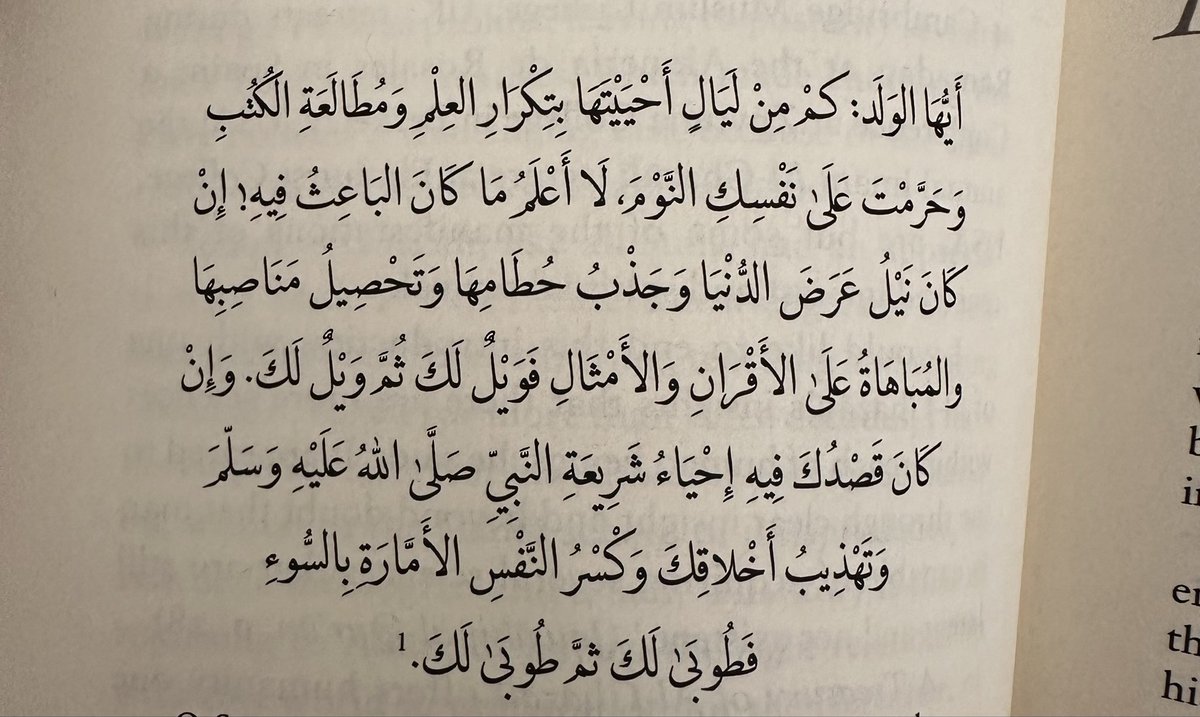 أَيُّهَا الوَلَد: كَمْ مِنْ لَيَالٍ أَحْيَيْتَهَا بِتِكْرَارِ العِلْمِ وَمُطَالَعَةِ الكُتُبِ
وَحَرَّمْتَ عَلَىٰ نَفْسِكِ النَّوْمَ، لَا أَعْلَمُ مَا كَانَ البَاعِثُ فِيهِ! إِنْ
كَانَ نَيْلُ عَرَضَ الدُّنْيَا وَجَذْبُ حُطَامِهَا وَتَحْصِيلُ مَنَاصِبِهَا
والمُبَاهَاةُ عَلَىٰ الأَقْرَانِ وَالأَمْثَالِ فَوَيْلٌ لَكَ ثُمَّ وَيْلٌ لَكَ. وَإِنْ
كَانَ قَصْدُكَ فِيهِ إِحْيَاءُ شَرِيعَةِ النَّبِيِّ صَلَّىٰ اللهُ عَلَيْهِ وَسَلَّمَ
وَتَهْذِيبُ أَخْلاقِكَ وَكْسْرُ النَّفْسِ الأَمَّارَةِ بِالسُّوءِ
فَطُوبَىٰ لَكَ ثمَّ طُوبَىٰ لَكَ.1